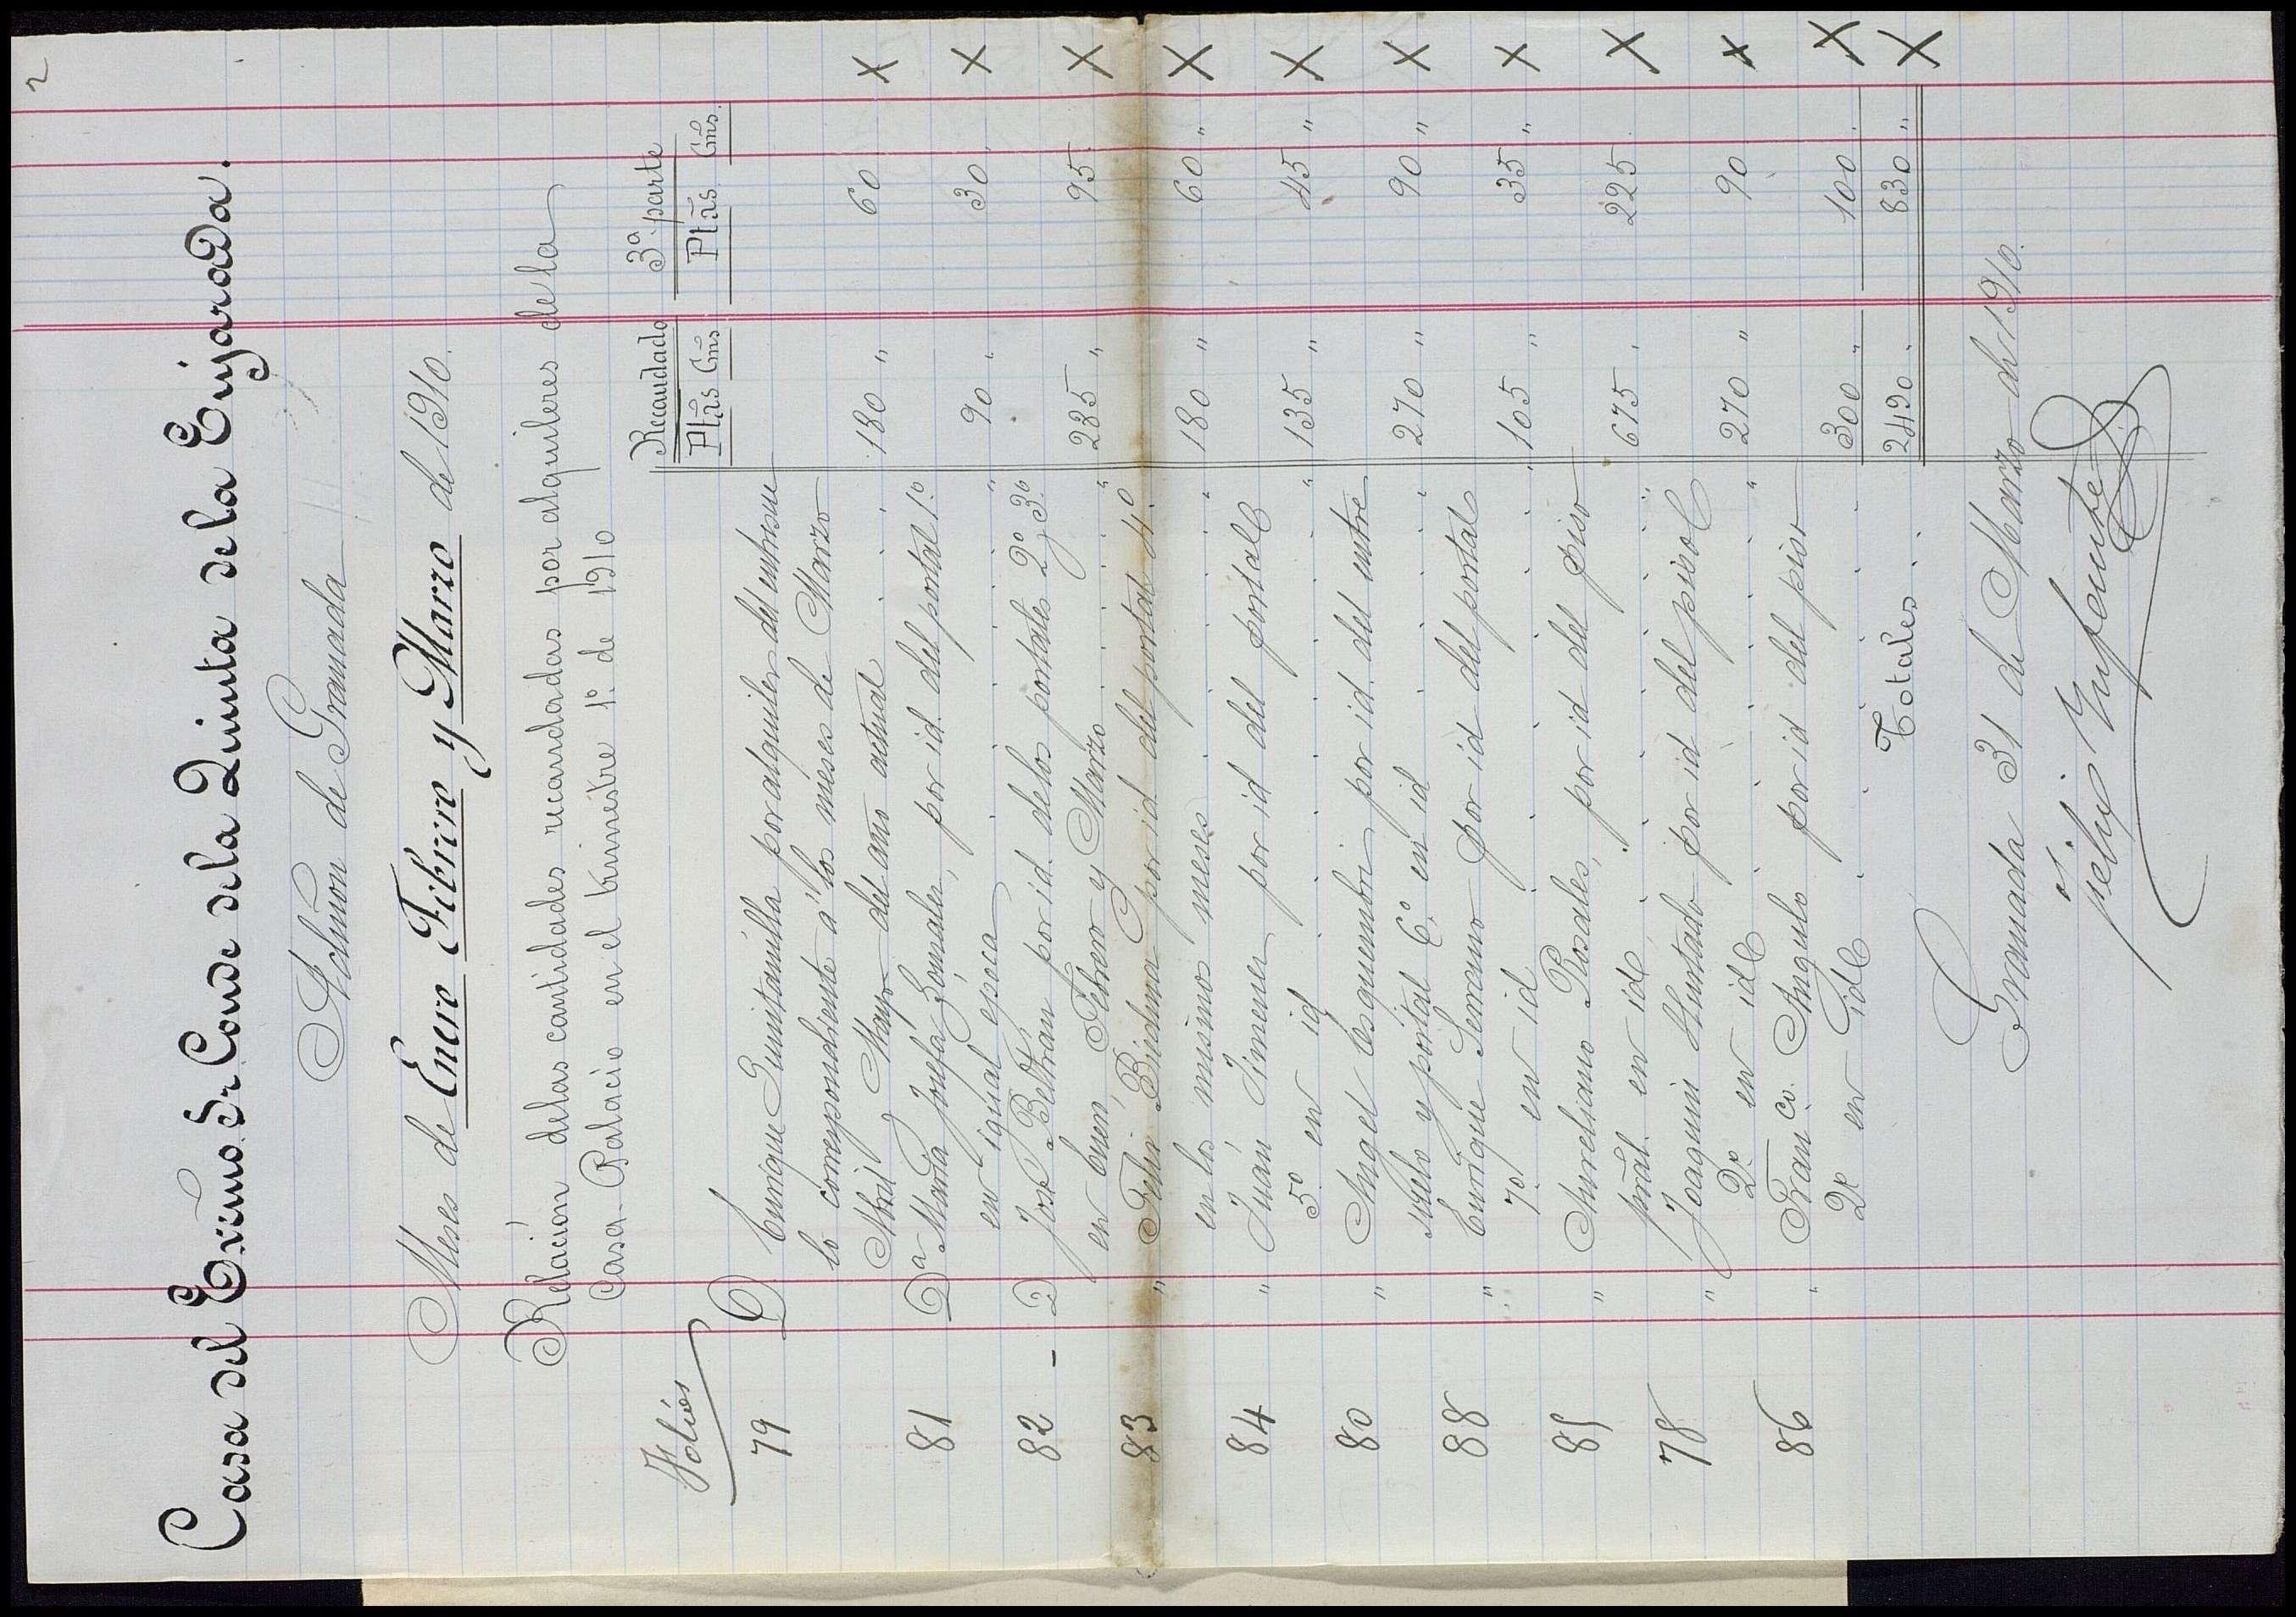 2
Casa del Excmo. Sr Conde de la Quinta de la Enjarada.
Admón de Granada
Meses de Enero Febrero y Marzo de 1910.
Relación de las cantidades recaudadas por alquileres de la
Casa-Palacio en el trimestre 1º de 1910
Recaudado 3ª parte
Folios Ptas Cms Ptas Cms.
79 D Enrique Quintanilla por alquiler del entresue
lo correspondiente á los meses de Marzo
Abril y Mayo del año actual 180 " 60 X
81 Dª María Josefa González, por id. del portal 1.º
en igual época " 90 " 30 " X
82 - D José Beltrán por id. de los portales 2º y 3.º
en Enero, Febrero y Marzo " 285 " 95 " X
83 " Felix Biedma por id del portal 4.º
en los mismos meses " 180 " 60 " X
84 " Juán Jimenez por id del portal
5º en id " 135 " 45 " X
80 " Angel Esquembri por id. del entre
suelo y portal 6º en id 270 " 90 " X
88 " Enrique Serrano por id del portal
7º en id 105 " 35 " X
85 " Aureliano Rosales, por id del piso
pral. en id " 675 " 225 X
78 " Joaquin Hurtado por id del piso
2º en id " 270 " 90 X
86 " Franco. Angulo por id del piso
2º en id 300 " 100 X
Totales 2490 " 830 " X
Granada 31 de Marzo de 1910.